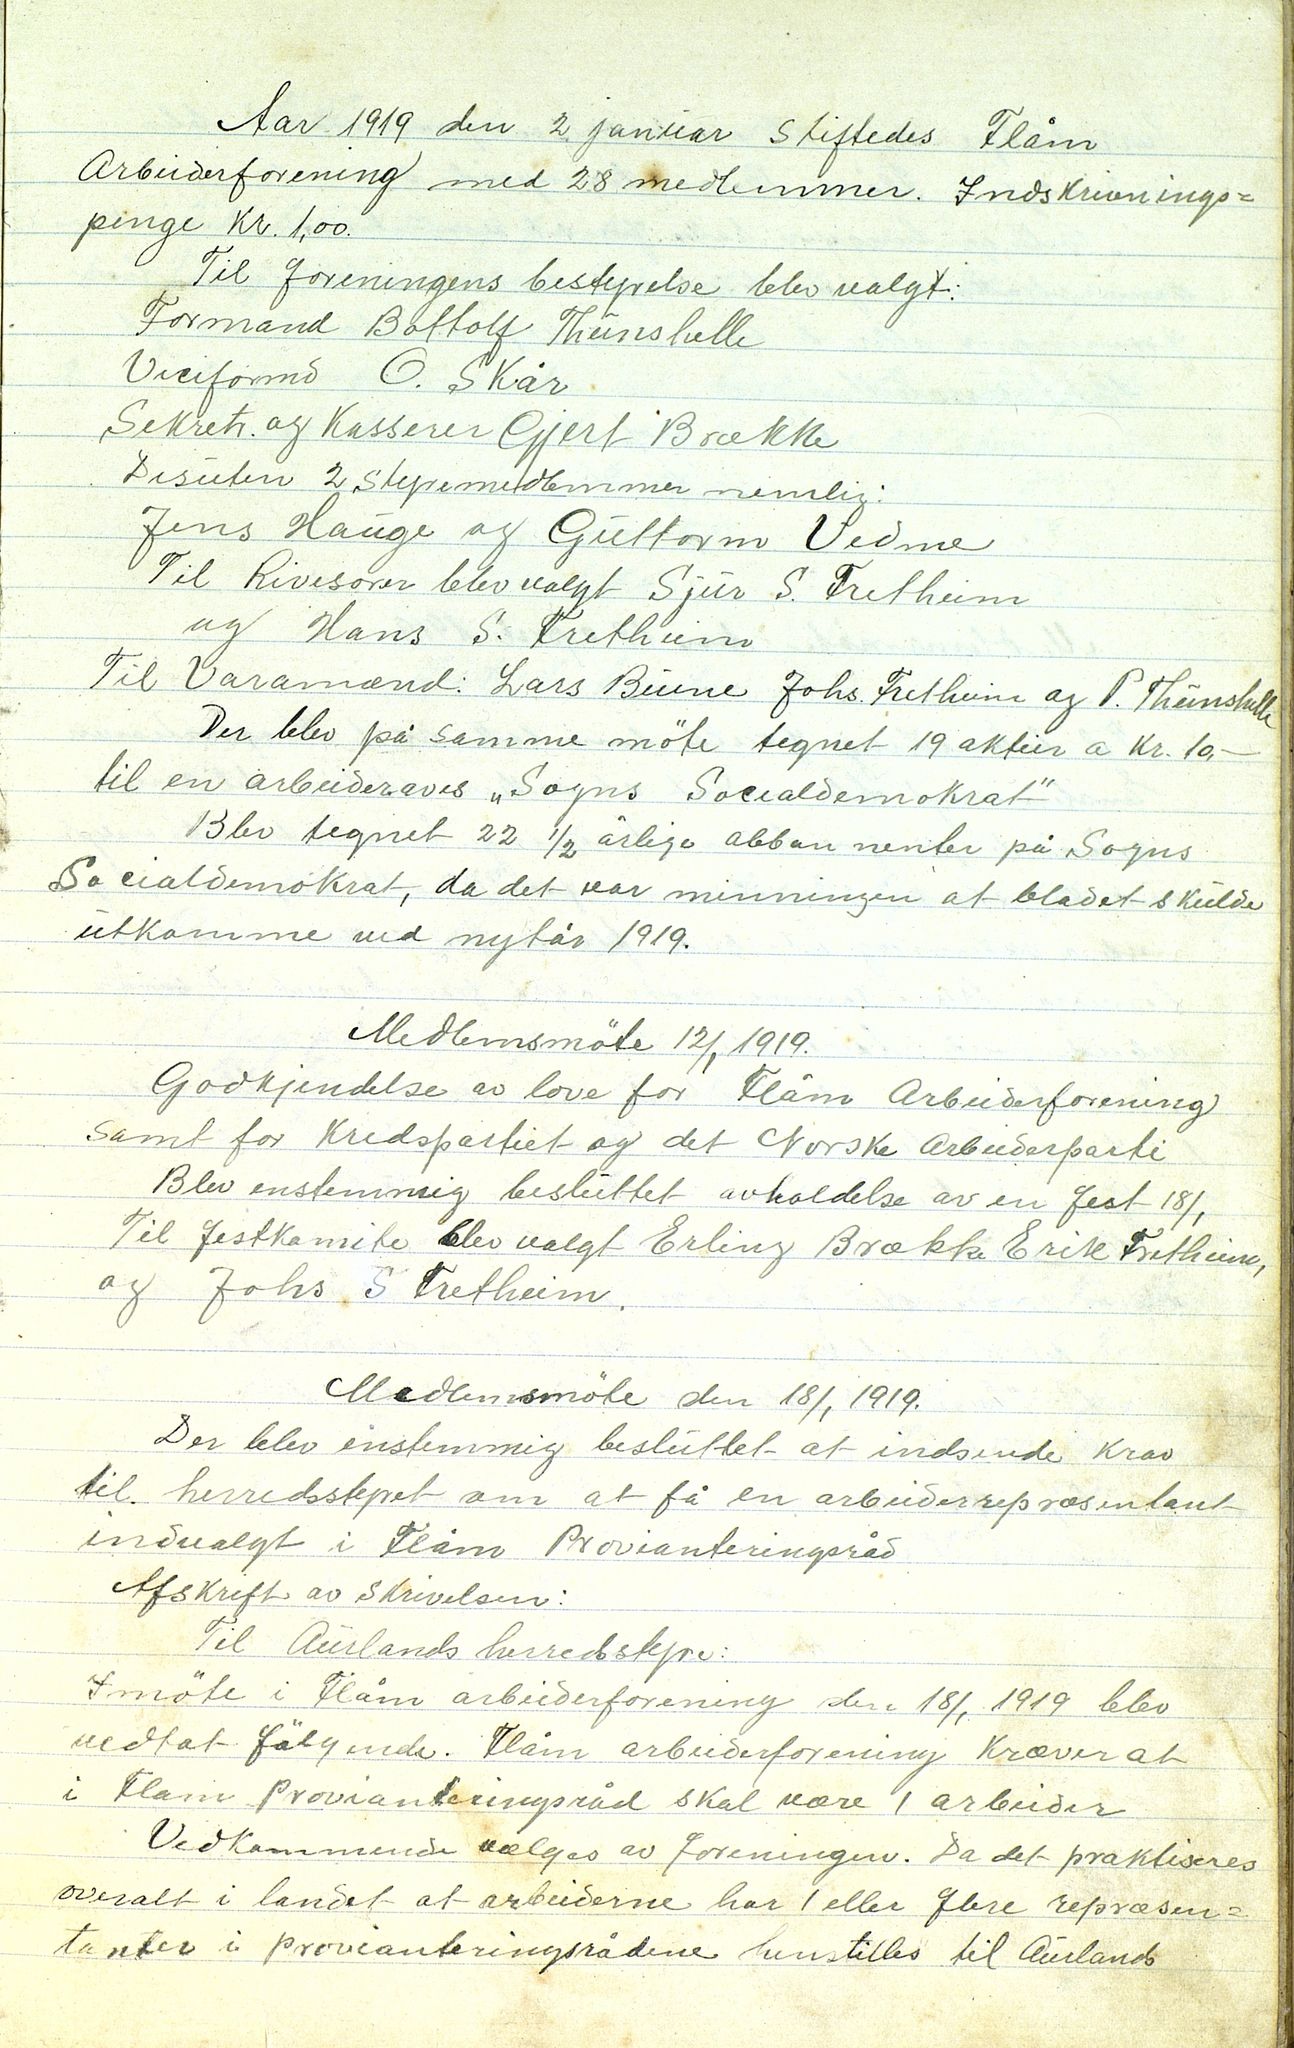 Aar 1919 den 2 januar stiftedes Flåm
Arbeiderforening med 28 medlemmer. Indskrivnings=
penge Kr. 1,00.
Til foreningens bestyrelse blev valgt:
Formand Bottolf Thunshelle
Viciformd O. Skår
Sekretr. og Kasserer Gjert Brække
Desuten 2 styremedlemmer nemlig:
Jens Hauge og Guttorm Vedme
Til Rivesorer blev valgt Sjur S. Fretheim
og Hans S. Fretheim
Til Varamænd: Lars Brune Johs. Fretheim og P. Thunshelle
Der blev på samme möte tegnet 19 aktier a Kr. 10,-
til en arbeideravis „Sogns Socialdemokrat"
Blev tegnet 22 1/2 årlige abbonnenter på Sogns
Socialdemokrat, da det var minningen at bladet skulde
utkomme ved nytår 1919.
Medlemsmöte 12/1 1919.
Godkjendelse av love for Flåm Arbeiderforening
samt for Kredspartiet og det Norske Arbeiderparti
Blev enstemmig besluttet avholdelse av en fest 18/1
Til festkomite blev valgt Erling Brække Erik Fretheim,
og Johs S Fretheim.
Medlemsmöte den 18/1 1919.
Der blev enstemmig besluttet at indsende krav
til herredsstyret om at få en arbeiderrepræsentant
indvalgt i Flåm Provianteringsråd
Afskrift av skrivelsen:
Til Aurlands herredsstyre:
I möte i Flåm arbeiderforening den 18/1 1919 blev
vedtat fölgende. Flåm arbeiderforening kræver at
i Flam Provianteringsråd skal være 1 arbeider
Vedkommende vælges av foreningen. Da det praktiseres
overalt i landet at arbeiderne har 1 eller flere repræsen=
tanter i provianteringsrådene henstilles til Aurlands